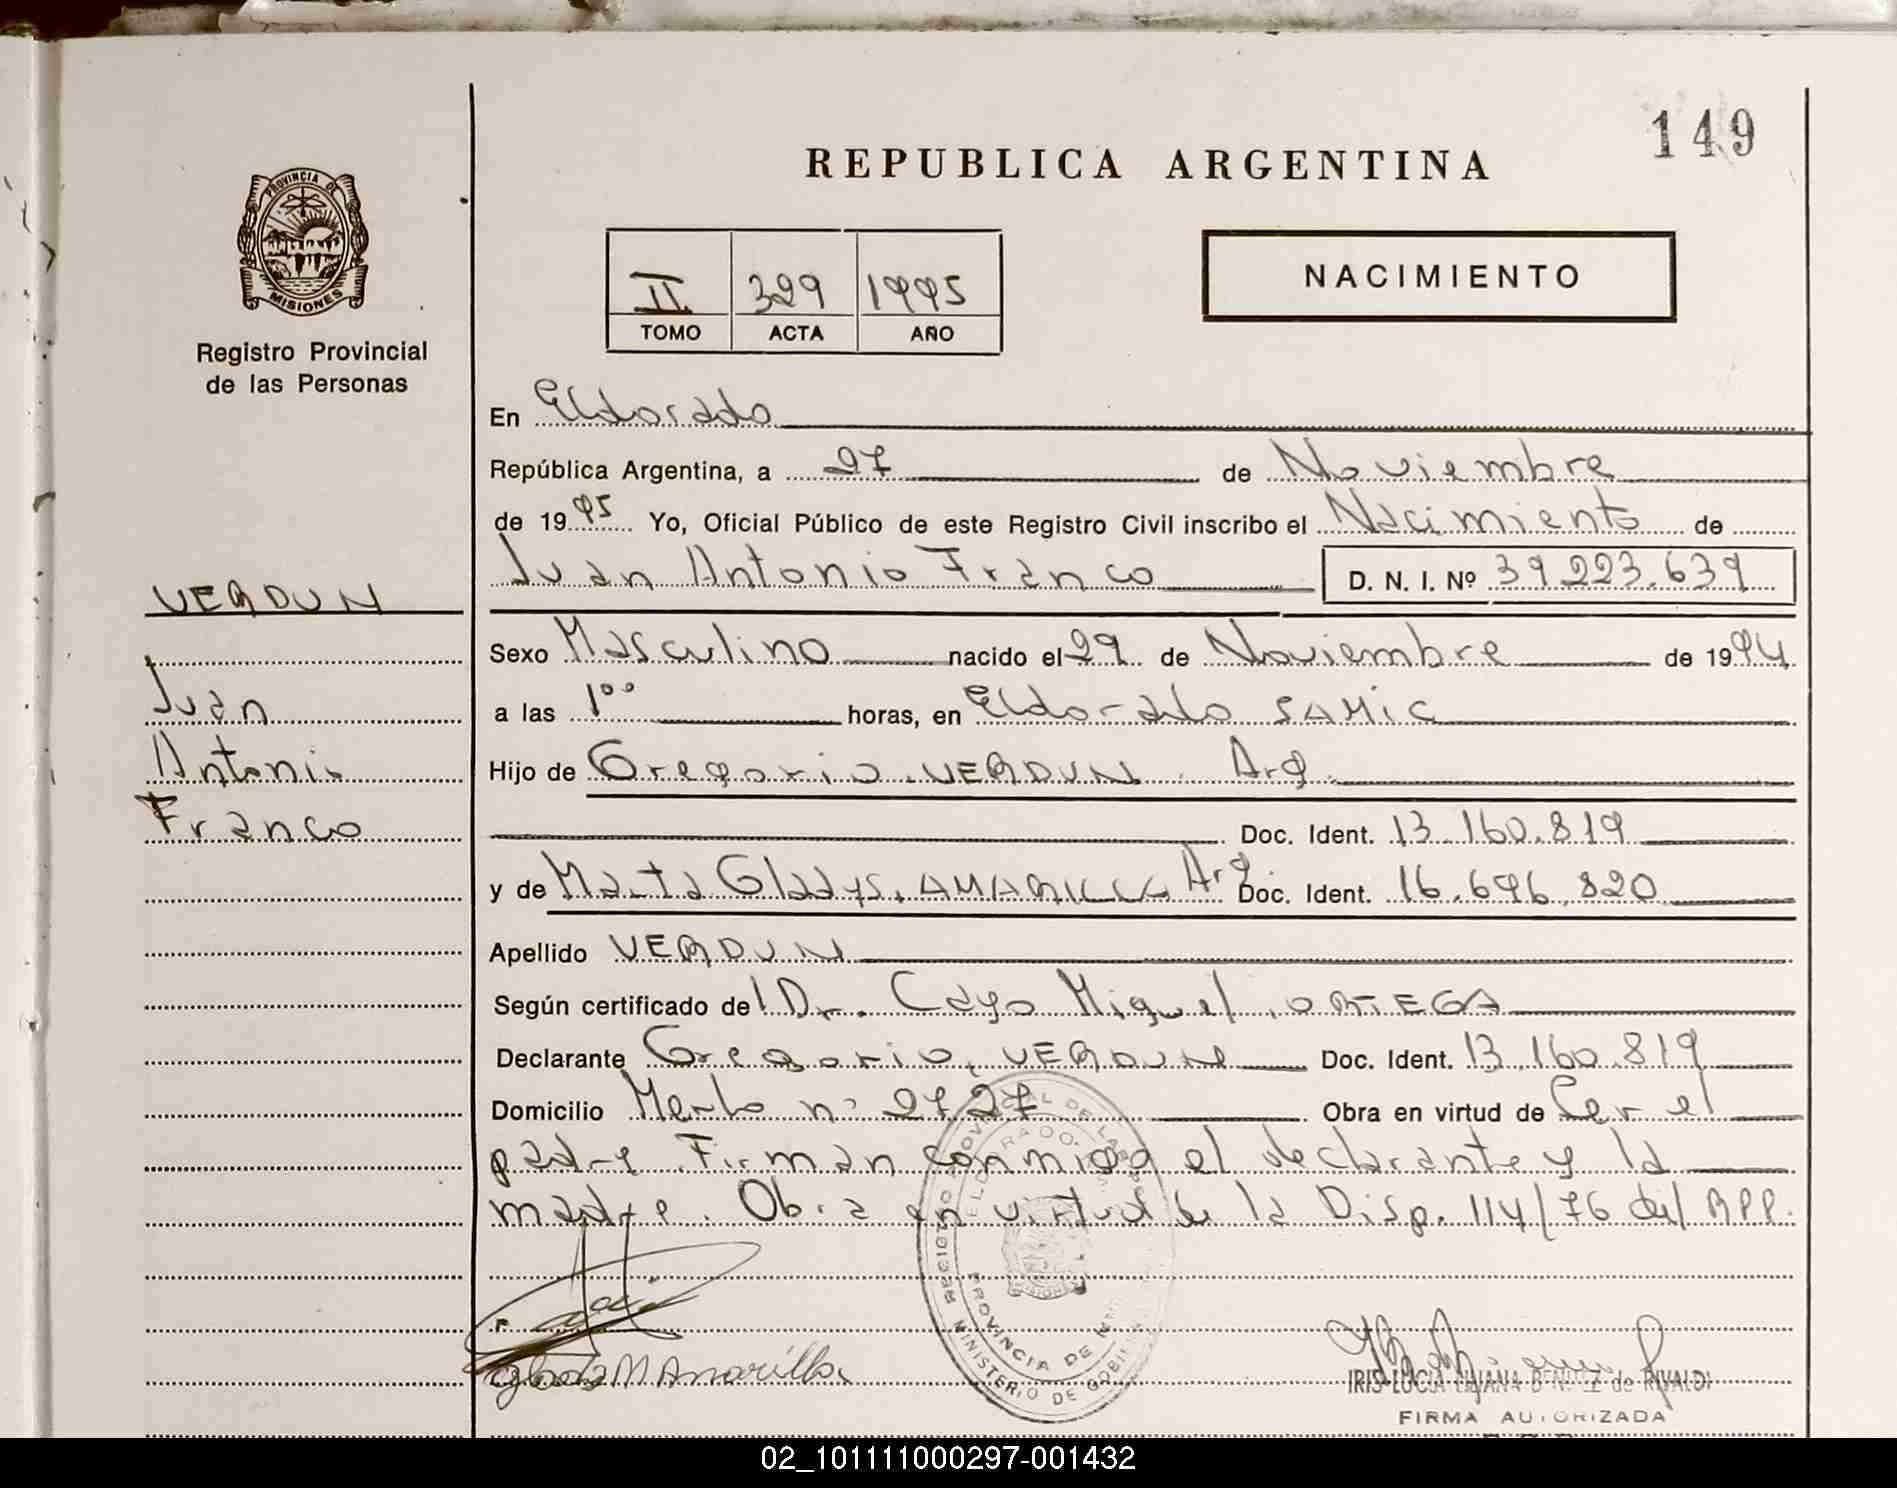 149
REPUBLICA ARGENTINA
PROVINCIA DE
MISIONES
Registro Provincial
de las Personas
II 329 1995
TOMO ACTA AÑO
NACIMIENTO
En Eldorado
República Argentina, a 27 de Noviembre
de 1995 Yo, Oficial Público de este Registro Civil inscribo el Nacimiento de
Juan Antonio Franco D. N. I. Nº 39.223.639
VERDUN
Juan
Antonio
Franco
Sexo Masculino nacido el 29 de Noviembre de 1994
a las 1⁰⁰ horas, en Eldorado SAMIC
Hijo de Gregorio VERDUN. Arg.
Doc. Ident. 13.160.819
y de Marta Gladys. AMARILLA Arg. Doc. Ident. 16.696.820
Apellido VERDUN
Según certificado de l Dr. Cayo Miguel ORTEGA
Declarante Gregorio, VERDUN Doc. Ident. 13.160.819
Domicilio Merlo nº 2727 Obra en virtud de Ser el
padre. Firman conmigo el declarante y la
madre. Obra en virtud de la Disp. 114/76 del RPP.
REGISTRO PROVINCIAL DE LAS
ELDORADO
PROVINCIA DE
MINISTERIO DE GOBI
Amarilla
IRIS LUCIA LILIANA BENITEZ de RIVALDI
FIRMA AUTORIZADA
02_101111000297-001432